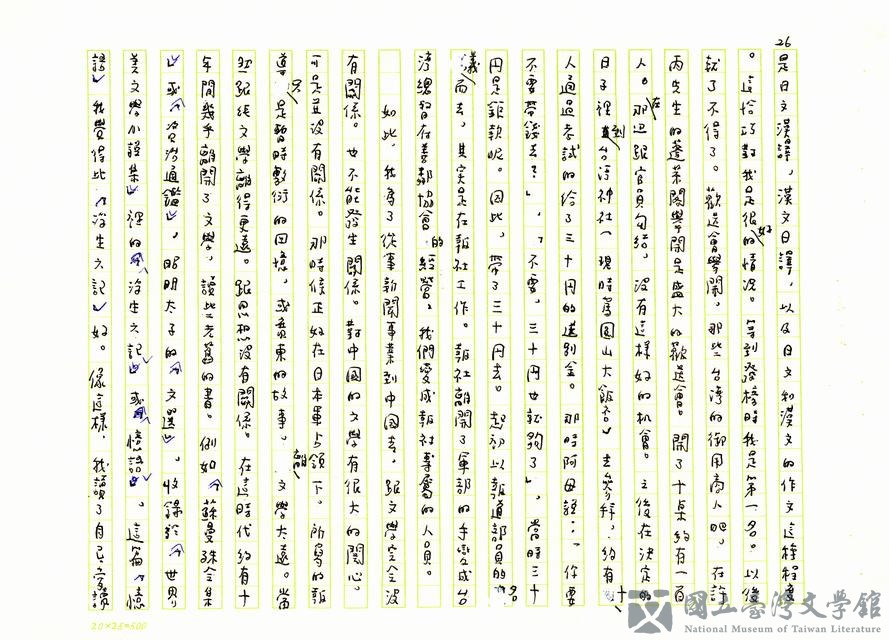 26
是日文漢譯，漢文日譯，以及日文和漢文的作文這種程度
。這恰巧對我是很好的情况。等到發榜時我是第一名。以後
就了不得了。歡送會舉開。那些台湾的御用商人吧，在許
丙先生的蓬莱閣舉開是盛大的歡送會。開了十桌約有一百
人。在那边跟官員勾結，沒有這樣好的机會。之後在決定的
日子裡到台湾神社（現時為圓山大飯店）去參拜，約有十
人通過考試的給了三十円的送别金。那時阿母說：「你要
不要帶錢去？」，「不要，三十円也就夠了」，當時三十
円是鉅款呢。因此，帶了三十円去。起初以報道部員的名
義而去，其实是在報社工作。報社離開了軍部的手变成台
湾總督在善鄰協會的經營。我們变成報社專屬的人員。
如此，我為了從事新聞事業到中国去，跟文學完全沒
有関係。也不能發生関係。對中国的文學有很大的関心。
可是並沒有関係。那時候正好在日本軍占領下。所寫的報
導只是暫時敷衍的回憶，或貴東的故事。離文學太遠。當
然跟純文學離得更遠。跟思想沒有関係。在這時代約有十
年間幾乎離開了文學，讀些老舊的書。例如《蘇曼殊全集
》或《資治通鑑》，昭明太子的《文選》，收錄於《世界
美文學小說集》裡的《浮生六記》或《憶語》。這篇《憶
語》我覺得比《浮生六記》好。像這樣，我讀了自己愛讀
20×25=500
國立臺灣文學館
National Museum of Taiwan Literature